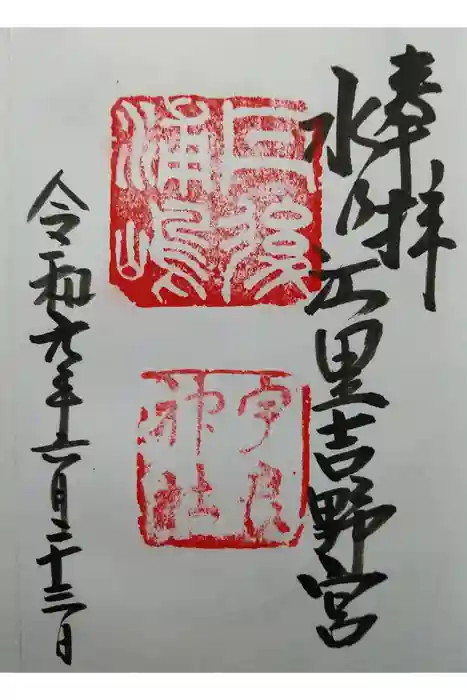 奉拝
水ノ江里吉野宮
丹後
浦嶋
宇良
神社
令和元年六月二十三日